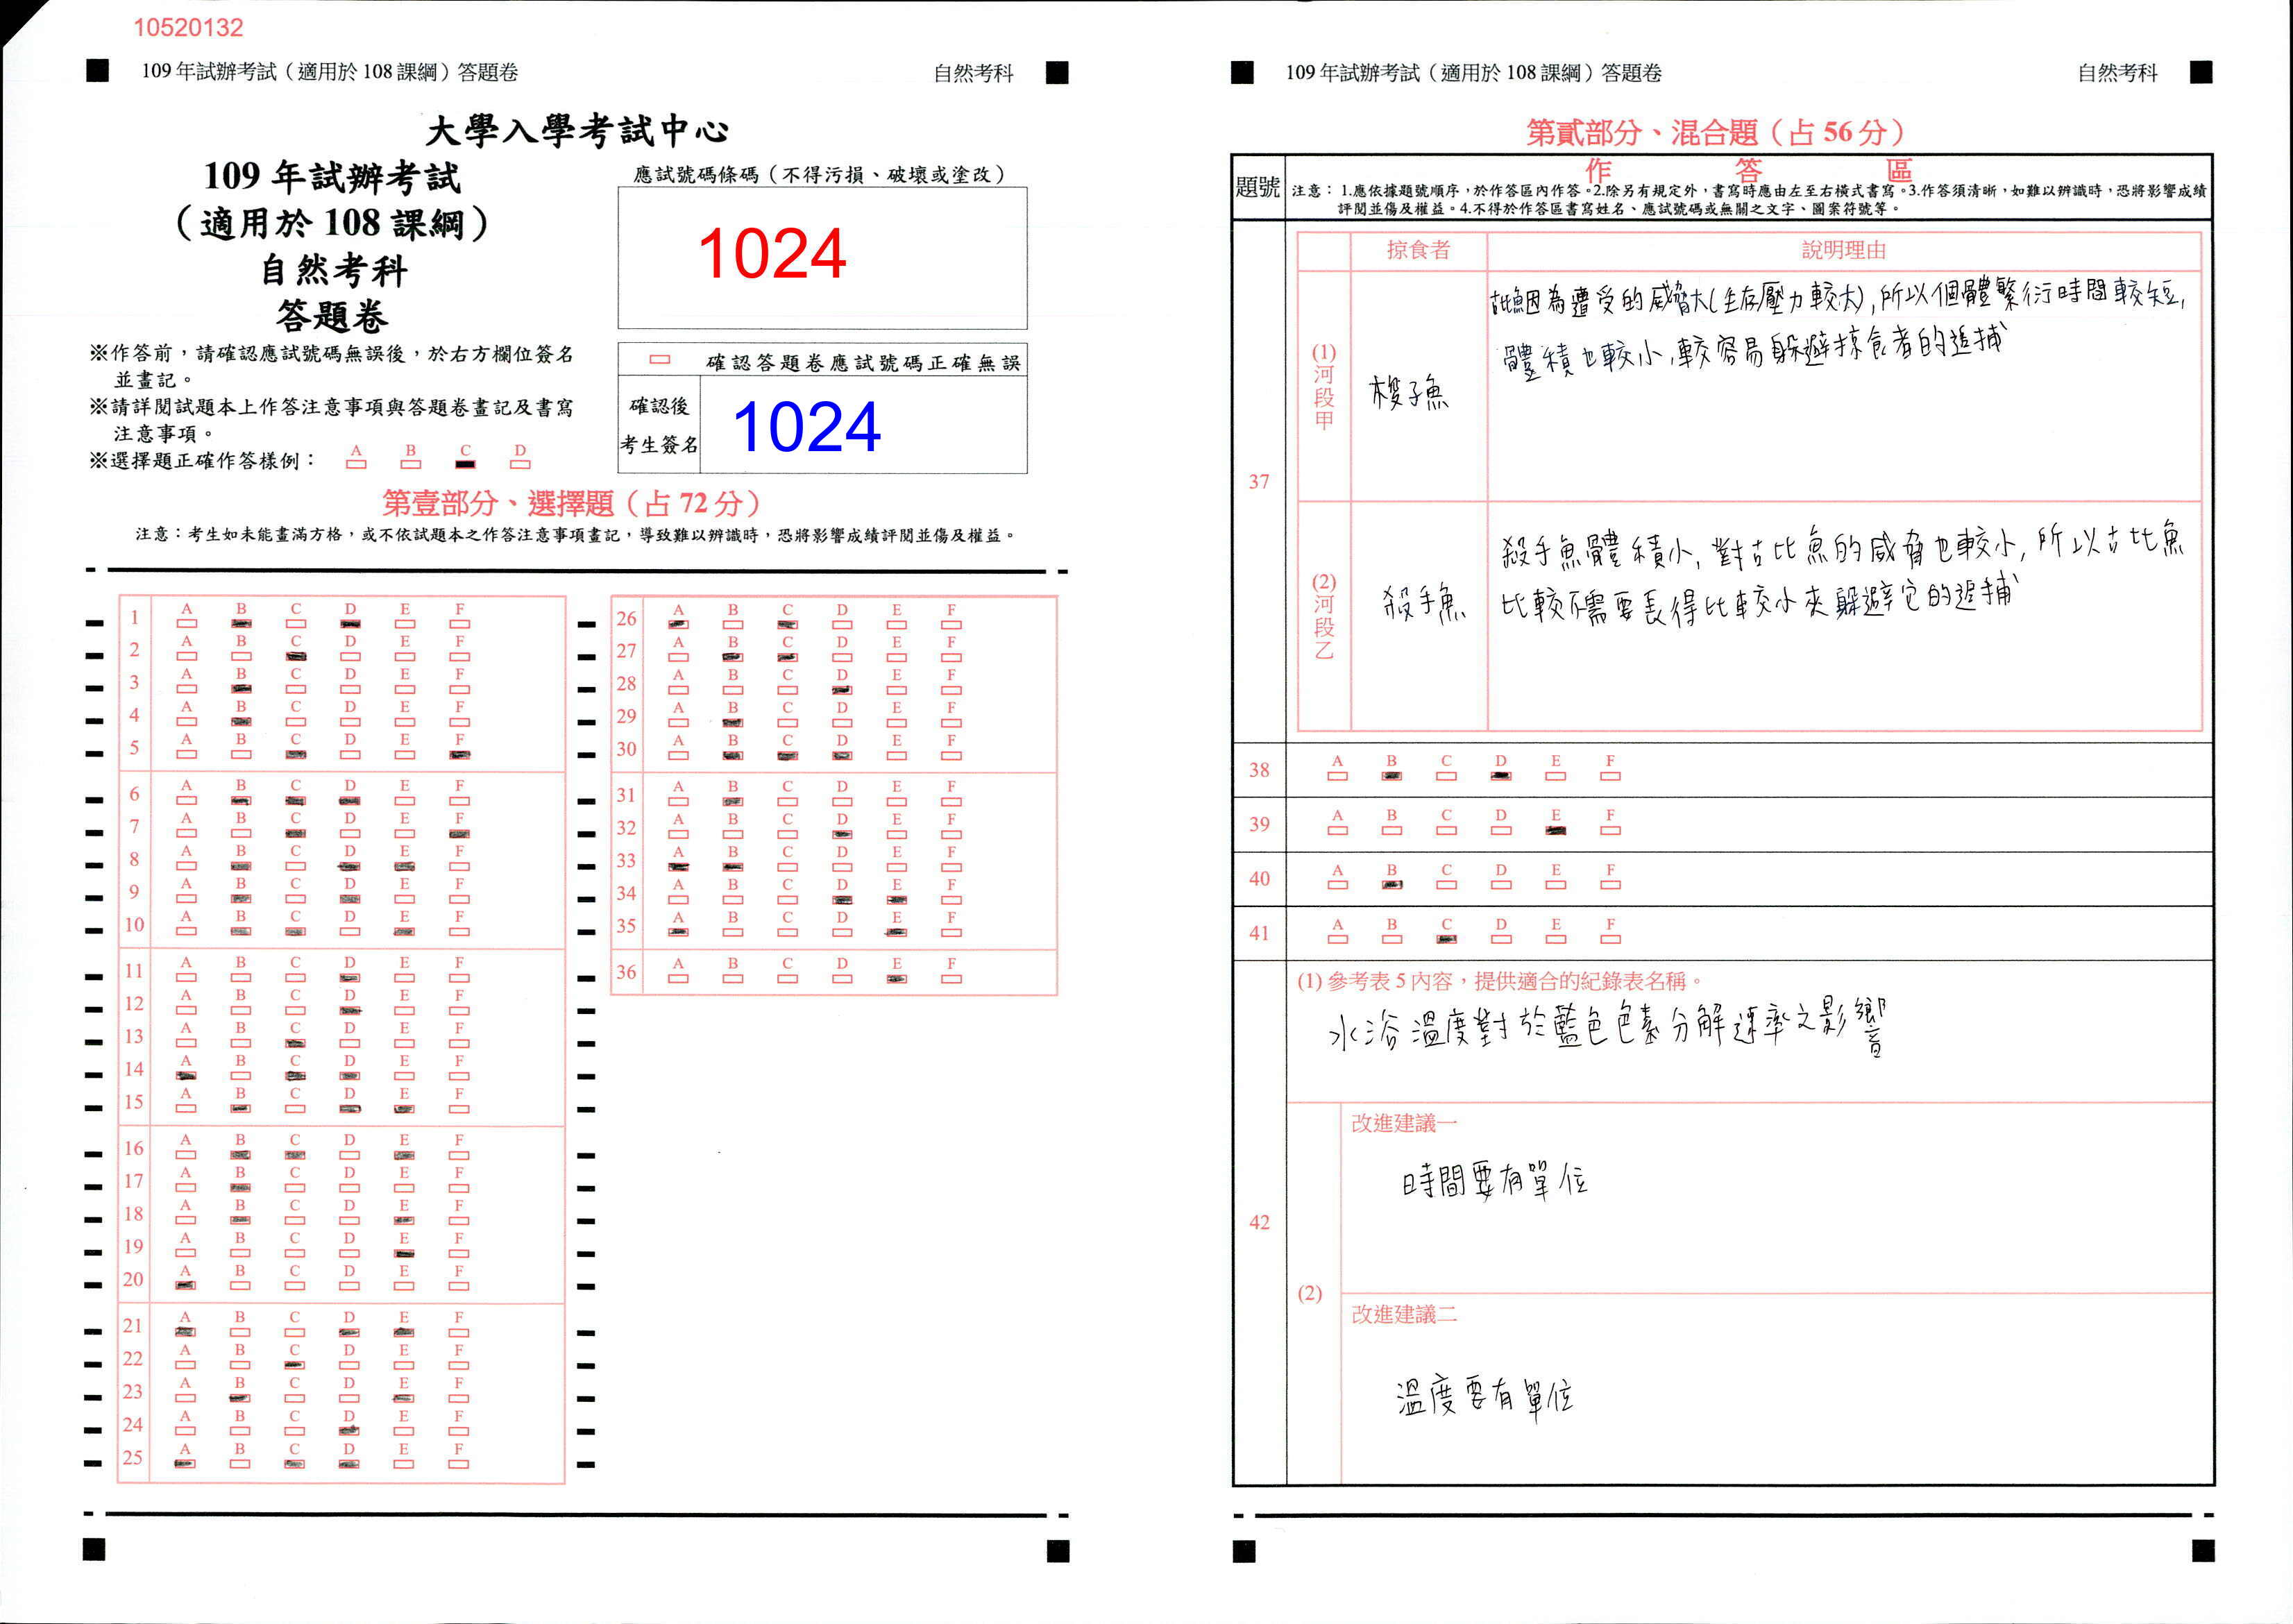 10520132
109 年試辦考試（適用於 108 課綱）答題卷 自然考科
大學入學考試中心
109 年試辦考試
（適用於 108 課綱）
自然考科
答題卷
※作答前，請確認應試號碼無誤後，於右方欄位簽名
並畫記。
※請詳閱試題本上作答注意事項與答題卷畫記及書寫
注意事項。
※選擇題正確作答樣例： A B C D
應試號碼條碼（不得污損、破壞或塗改）
1024
確認答題卷應試號碼正確無誤
確認後
考生簽名
1024
第壹部分、選擇題（占 72 分）
注意：考生如未能畫滿方格，或不依試題本之作答注意事項畫記，導致難以辨識時，恐將影響成績評閱並傷及權益。
1 A B C D E F
2 A B C D E F
3 A B C D E F
4 A B C D E F
5 A B C D E F
6 A B C D E F
7 A B C D E F
8 A B C D E F
9 A B C D E F
10 A B C D E F
11 A B C D E F
12 A B C D E F
13 A B C D E F
14 A B C D E F
15 A B C D E F
16 A B C D E F
17 A B C D E F
18 A B C D E F
19 A B C D E F
20 A B C D E F
21 A B C D E F
22 A B C D E F
23 A B C D E F
24 A B C D E F
25 A B C D E F
26 A B C D E F
27 A B C D E F
28 A B C D E F
29 A B C D E F
30 A B C D E F
31 A B C D E F
32 A B C D E F
33 A B C D E F
34 A B C D E F
35 A B C D E F
36 A B C D E F
109 年試辦考試（適用於 108 課綱）答題卷 自然考科
第貳部分、混合題（占 56 分）
題號
作 答 區
注意：1.應依據題號順序，於作答區內作答。2.除另有規定外，書寫時應由左至右橫式書寫。3.作答須清晰，如難以辨識時，恐將影響成績
評閱並傷及權益。4.不得於作答區書寫姓名、應試號碼或無關之文字、圖案符號等。
37
掠食者 說明理由
(1)河段甲
梭子魚
古比魚因為遭受的威脅大(生存壓力較大),所以個體繁衍時間較短,
體積也較小,較容易躲避掠食者的追捕
(2)河段乙
殺手魚
殺手魚體積小,對古比魚的威脅也較小,所以古比魚
比較不需要長得比較小來躲避它的追捕
38 A B C D E F
39 A B C D E F
40 A B C D E F
41 A B C D E F
42
(1) 參考表 5 內容，提供適合的紀錄表名稱。
水浴溫度對於藍色色素分解速率之影響
(2)
改進建議一
時間要有單位
改進建議二
溫度要有單位